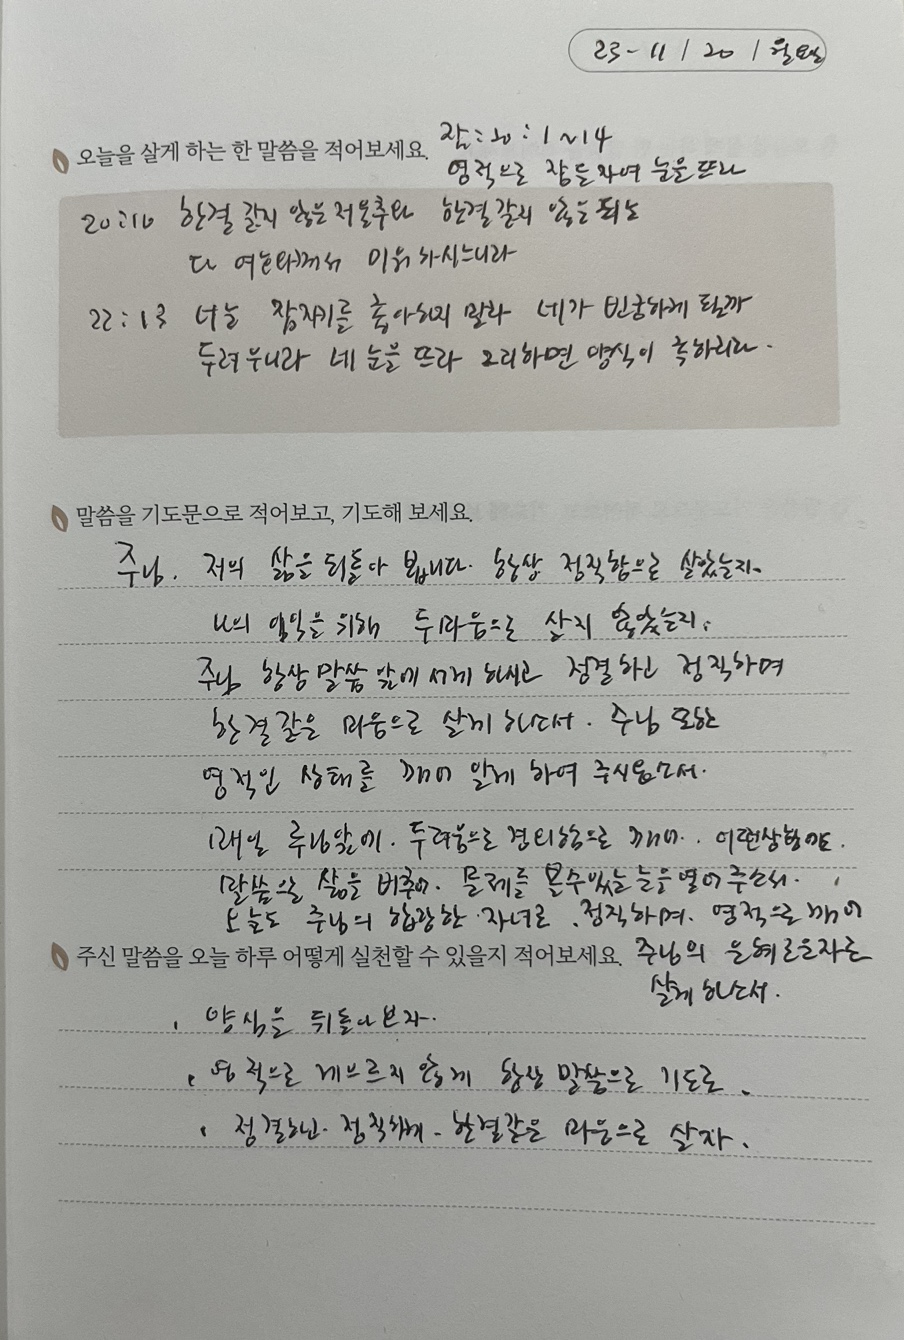 23-11/20/월요일
잠:20:1~14
오늘을 살게 하는 한 말씀을 적어보세요.
영적으로 잠든자여 눈을뜨라
20:10 한결 같지 않은 저울추와 한결같지 않은 되는
다 여호와께서 미워하시느니라
22:13 너는 잠자기를 좋아하지 말라 네가 빈궁하게 될까
두려우니라 네 눈을 뜨라 그리하면 양식이 족하리라.
말씀을 기도문으로 적어보고, 기도해 보세요.
주님. 저의 삶을 뒤돌아 봅니다. 항상 정직함으로 살았는지.
나의 이익을 위해 두마음으로 살지 않았는지.
주님 항상 말씀 앞에 서게 하시고 정결하고 정직하며
한결같은 마음으로 살게 하소서. 주님 또한
영적인 상태를 깨어 알게 하여 주시옵소서.
매일 주님앞에. 두려움으로 경외함으로 깨어.
말씀으로 삶을 비추어. 문제를 볼수있는 눈을 열어 주소서.
오늘도 주님의 합당한 자녀로. 정직하며. 영적으로 깨어
주신 말씀을 오늘 하루 어떻게 실천할 수 있을지 적어보세요.
주님의 은혜로운자로
살게 하소서.
. 양식을 뒤돌아보자.
. 영적으로 게으르지 않게 항상 말씀으로 기도로.
. 정결하고. 정직하게. 한결같은 마음으로 살자.